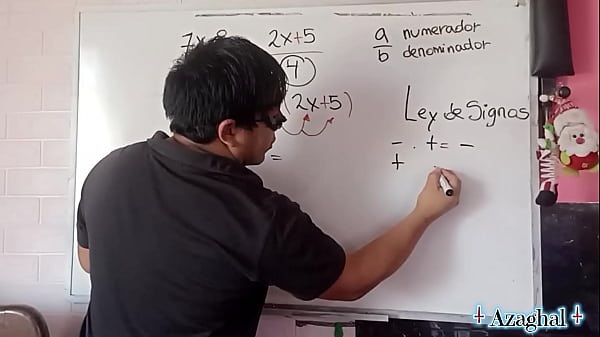 2x+5
4
a numerador
b denominador
(2x+5)
=
Ley de Signos
- . + = -
+
+ Azaghal +